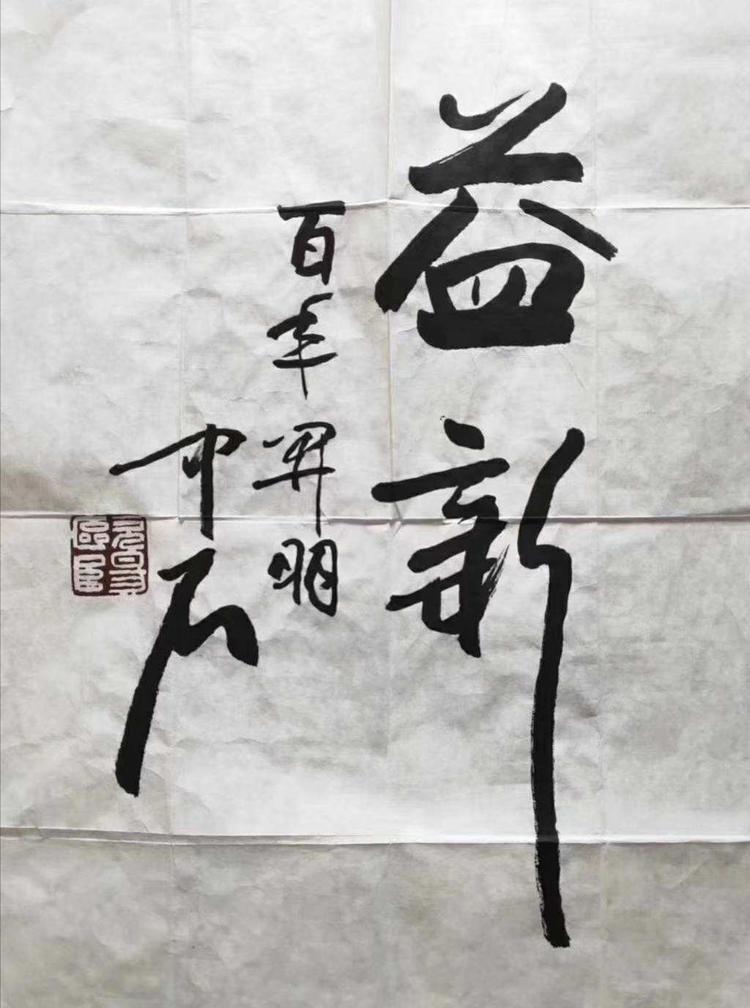 益新
百年開明
中石